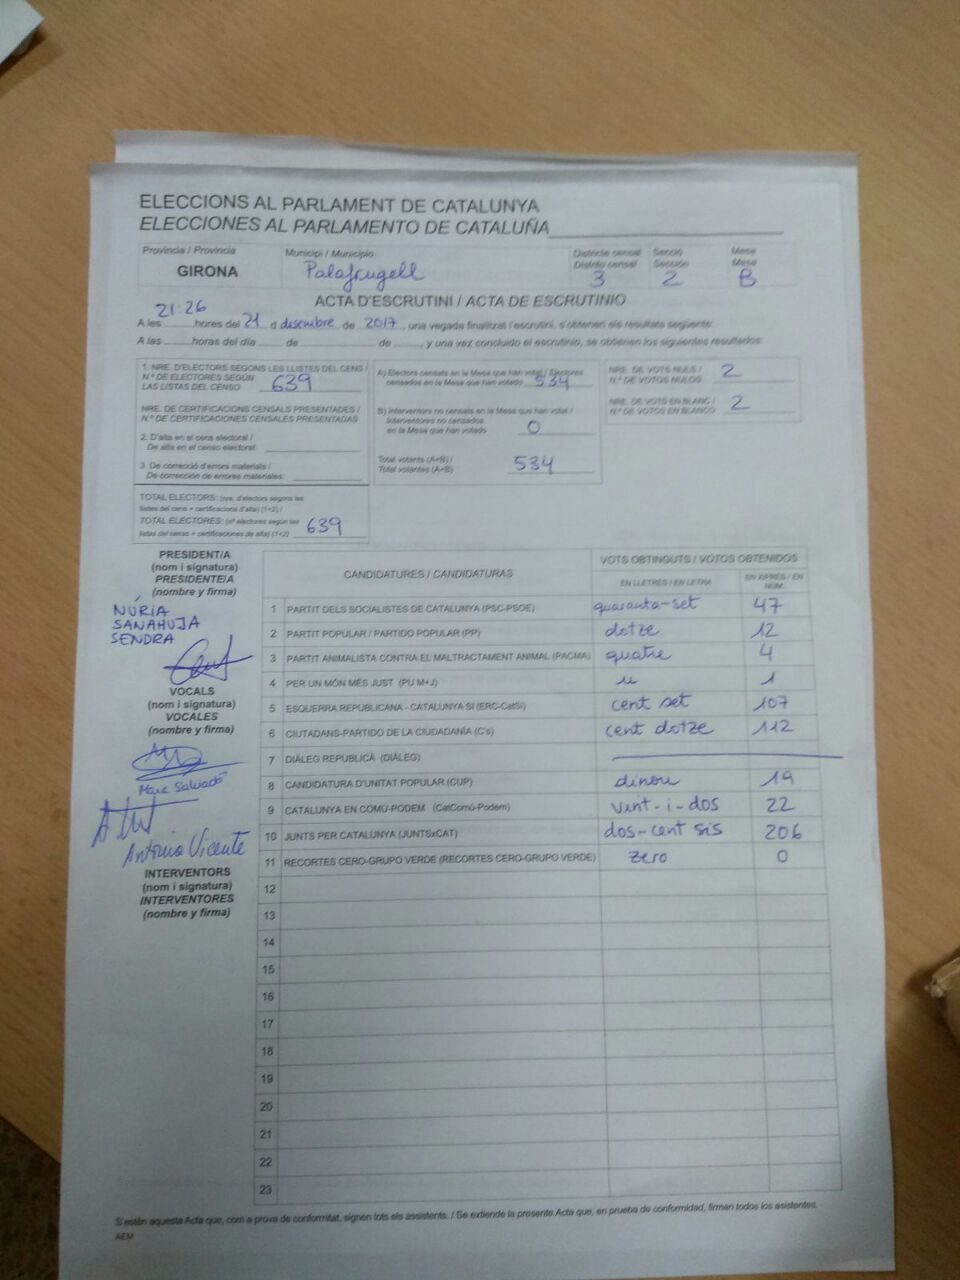 ELECCIONS AL PARLAMENT DE CATALUNYA
ELECCIONES AL PARLAMENTO DE CATALUÑA
Província / Provincia
GIRONA
Municipi / Municipio
Palafrugell
Districte censal
Distrito censal
3
Secció
Sección
2
Mesa
Mesa
B
ACTA D'ESCRUTINI / ACTA DE ESCRUTINIO
21:26
A les hores del 21 d desembre de 2017, una vegada finalitzat l'escrutini, s'obtenen els resultats següents:
A las horas del día de de , y una vez concluido el escrutinio, se obtienen los siguientes resultados:
1. NRE. D'ELECTORS SEGONS LES LLISTES DEL CENS /
N.º DE ELECTORES SEGÚN
LAS LISTAS DEL CENSO 639
NRE. DE CERTIFICACIONS CENSALS PRESENTADES /
N.º DE CERTIFICACIONES CENSALES PRESENTADAS
2. D'alta en el cens electoral /
De alta en el censo electoral:
3. De correcció d'errors materials /
De corrección de errores materiales:
TOTAL ELECTORS: (nre. d'electors segons les
llistes del cens + certificacions d'alta) (1+2) /
TOTAL ELECTORES: (nº electores según las
listas del censo + certificaciones de alta) (1+2) 639
A) Electors censats en la Mesa que han votat / Electores
censados en la Mesa que han votado 534
B) Interventors no censats en la Mesa que han votat /
Interventores no censados
en la Mesa que han votado 0
Total votants (A+B) /
Total votantes (A+B) 534
NRE. DE VOTS NULS /
N.º DE VOTOS NULOS 2
NRE. DE VOTS EN BLANC /
N.º DE VOTOS EN BLANCO 2
PRESIDENT/A
(nom i signatura)
PRESIDENTE/A
(nombre y firma)
NÚRIA
SANAHUJA
SENDRA
VOCALS
(nom i signatura)
VOCALES
(nombre y firma)
Marc Salvadó
Antonia Vicente
INTERVENTORS
(nom i signatura)
INTERVENTORES
(nombre y firma)
CANDIDATURES / CANDIDATURAS
VOTS OBTINGUTS / VOTOS OBTENIDOS
EN LLETRES / EN LETRA
EN XIFRES / EN
NÚM.
1 PARTIT DELS SOCIALISTES DE CATALUNYA (PSC-PSOE) quaranta-set 47
2 PARTIT POPULAR / PARTIDO POPULAR (PP) dotze 12
3 PARTIT ANIMALISTA CONTRA EL MALTRACTAMENT ANIMAL (PACMA) quatre 4
4 PER UN MÓN MÉS JUST (PU M+J) u 1
5 ESQUERRA REPUBLICANA - CATALUNYA SÍ (ERC-CatSí) cent set 107
6 CIUTADANS-PARTIDO DE LA CIUDADANÍA (C's) cent dotze 112
7 DIÀLEG REPUBLICÀ (DIÀLEG)
8 CANDIDATURA D'UNITAT POPULAR (CUP) dinou 19
9 CATALUNYA EN COMÚ-PODEM (CatComú-Podem) vint-i-dos 22
10 JUNTS PER CATALUNYA (JUNTSxCAT) dos-cent sis 206
11 RECORTES CERO-GRUPO VERDE (RECORTES CERO-GRUPO VERDE) zero 0
12
13
14
15
16
17
18
19
20
21
22
23
S'estén aquesta Acta que, com a prova de conformitat, signen tots els assistents. / Se extiende la presente Acta que, en prueba de conformidad, firman todos los asistentes.
AEM